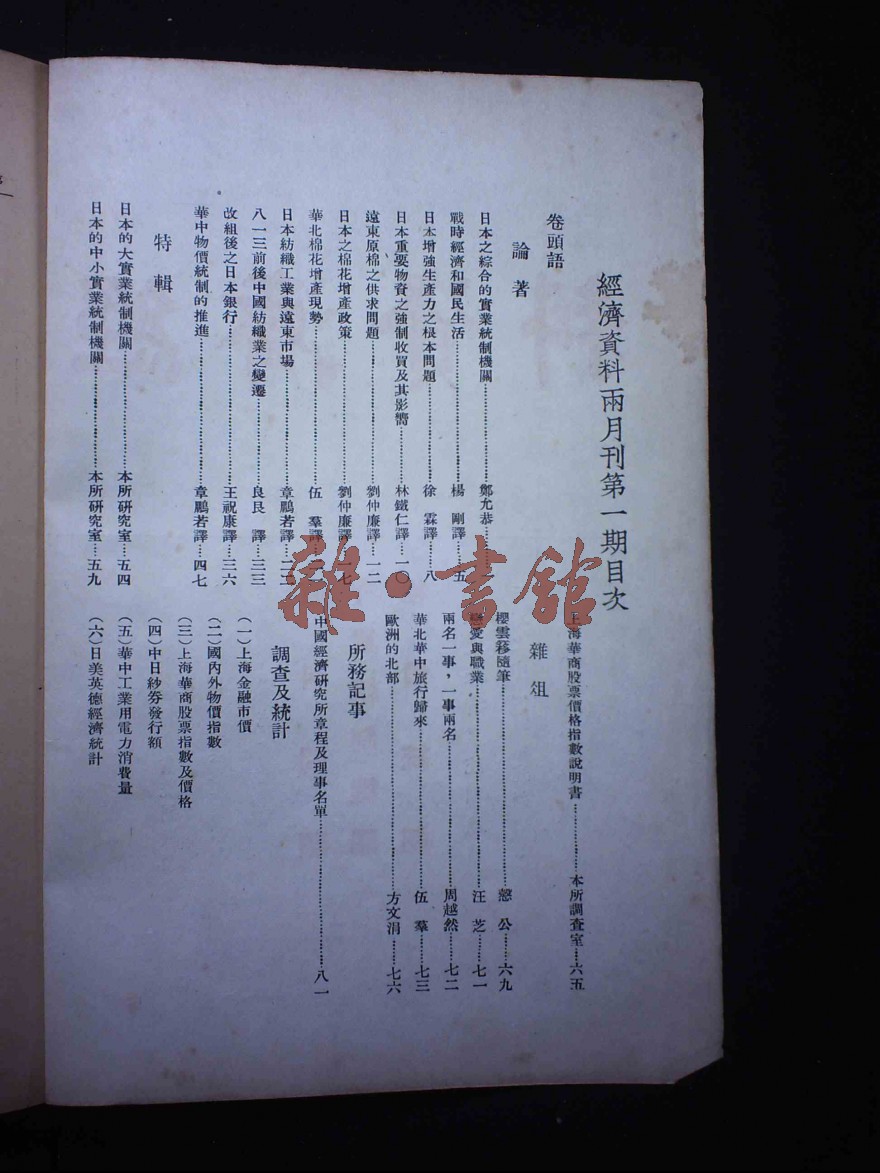 經濟資料兩月刊第一期目次
卷頭語
論著
日本之綜合的實業統制機關……鄭允恭
戰時經濟和國民生活……楊剛譯……五
日本增強生產力之根本問題……徐霖譯……八
日本重要物資之强制收買及其影嚮……林鐵仁譯……一〇
遠東原棉之供求問題……劉仲廉譯……一二
日本之棉花增產政策……劉仲廉譯……七
華北棉花增產現勢……伍羣譯
日本紡織工業與遠東市場……章鵬若譯
八一三前後中國紡織業之變遷……良良譯……三三
改組後之日本銀行……王祝康譯……三六
華中物價統制的推進……章鵬若譯……四七
特輯
日本的大實業統制機關……本所研究室……五四
日本的中小實業統制機關……本所研究室……五九
上海華商股票價格指數說明書……本所調查室……六五
雜俎
櫻雲簃隨筆……公……六九
愛與職業……汪芝……七一
兩名一事，一事兩名……周越然……七二
華北華中旅行歸來……伍羣……七三
歐洲的北部……方文涓……七六
所務記事
中國經濟研究所章程及理事名單……八一
調查及統計
（一）上海金融市價
（二）國內外物價指數
（三）上海華商股票指數及價格
（四）中日紗券發行額
（五）華中工業用電力消費量
（六）日美英德經濟統計
雜·書館